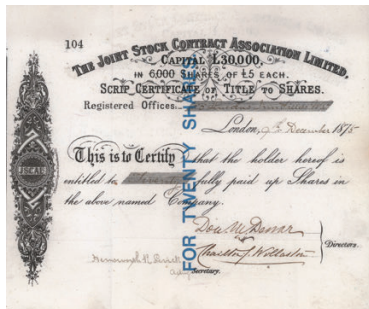 104
THE JOINT STOCK CONTRACT ASSOCIATION LIMITED.
CAPITAL £30,000,
IN 6,000 SHARES OF £5 EACH.
SCRIP CERTIFICATE OF TITLE TO SHARES.
Registered Offices
London, December 1875
This is to Certify that the holder hereof is
entitled to fully paid up Shares in
the above named Company.
FOR TWENTY SHARES
Directors.
Secretary.